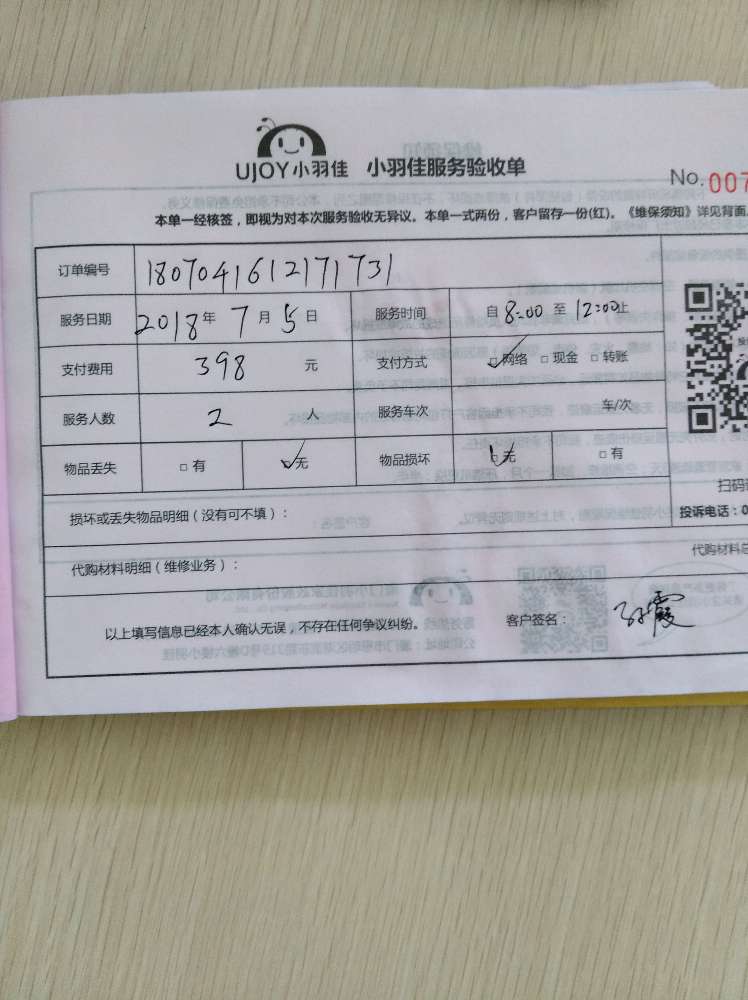 UJOY小羽佳 小羽佳服务验收单
No.007
本单一经核签，即视为对本次服务验收无异议。本单一式两份，客户留存一份(红)。《维保须知》详见背面。
订单编号 1807041612171731
服务日期 2018年7月5日 服务时间 自8:00至12:00止
支付费用 398 元 支付方式 网络 □现金 □转账
服务人数 2 人 服务车次 车/次
物品丢失 □有 无 物品损坏 无 □有
扫码
损坏或丢失物品明细（没有可不填）： 投诉电话：0
代购材料明细（维修业务）： 代购材料总
以上填写信息已经本人确认无误，不存在任何争议纠纷。 客户签名：